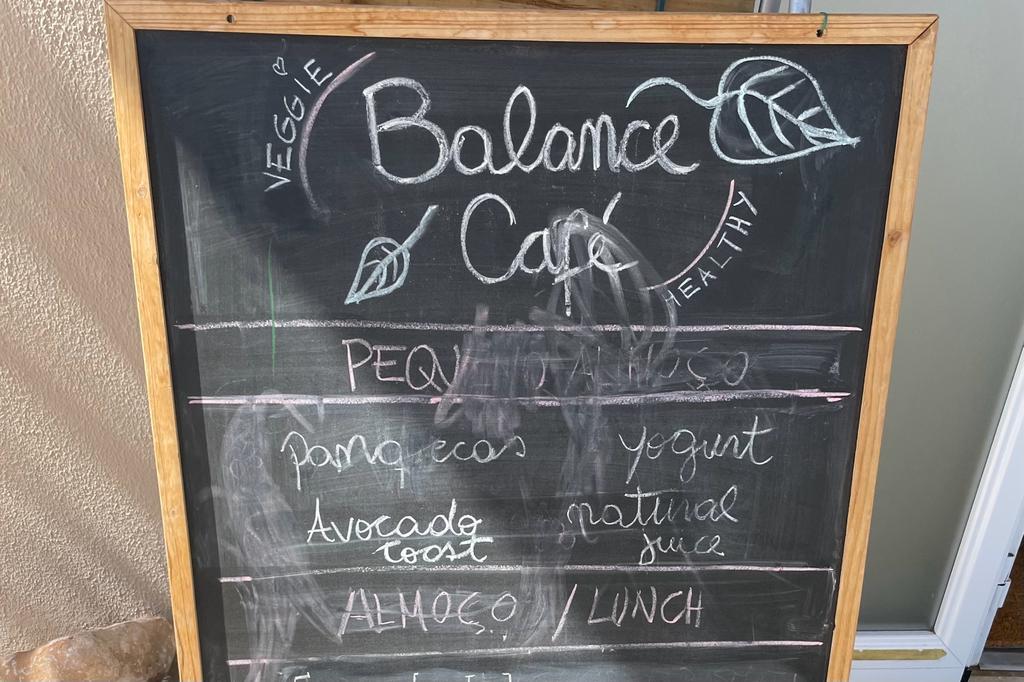 VEGGIE
Balance
Café
HEALTHY
PEQUENO ALMOÇO
panquecas
yogurt
Avocado
toost
natural
juice
ALMOÇO / LUNCH